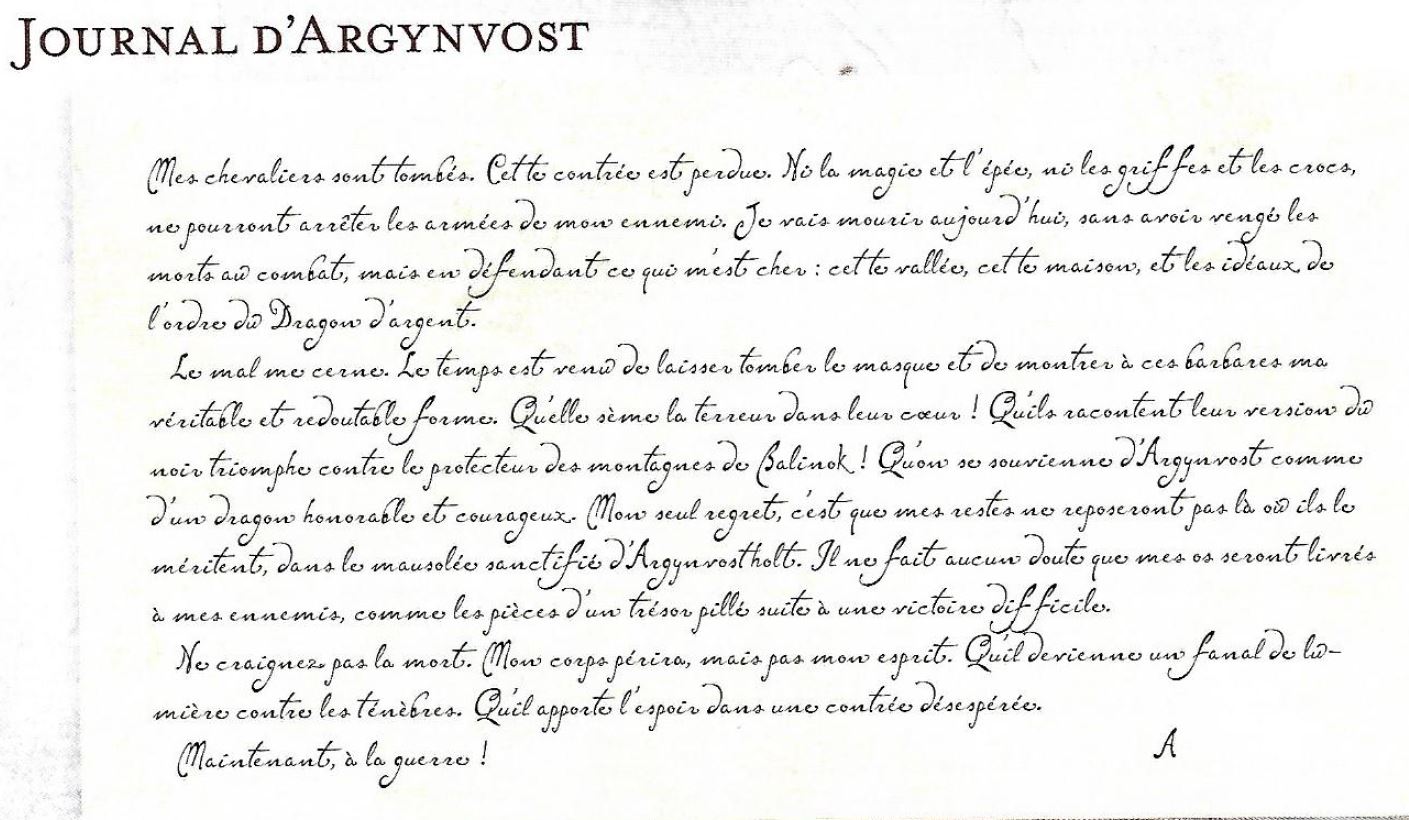 Journal d'Argynvost
Mes chevaliers sont tombés. Cette contrée est perdue. Ni la magie et l'épée, ni les griffes et les crocs,
ne pourront arrêter les armées de mon ennemi. Je vais mourir aujourd'hui, sans avoir vengé les
morts au combat, mais en défendant ce qui m'est cher : cette vallée, cette maison, et les idéaux de
l'ordre du Dragon d'argent.
Le mal me cerne. Le temps est venu de laisser tomber le masque et de montrer à ces barbares ma
véritable et redoutable forme. Qu'elle sème la terreur dans leur cœur ! Qu'ils racontent leur version du
noir triomphe contre le protecteur des montagnes de Balinok ! Qu'on se souvienne d'Argynvost comme
d'un dragon honorable et courageux. Mon seul regret, c'est que mes restes ne reposeront pas là où ils le
méritent, dans le mausolée sanctifié d'Argynvostholt. Il ne fait aucun doute que mes os seront livrés
à mes ennemis, comme les pièces d'un trésor pillé suite à une victoire difficile.
Ne craignez pas la mort. Mon corps périra, mais pas mon esprit. Qu'il devienne un fanal de lu-
mière contre les ténèbres. Qu'il apporte l'espoir dans une contrée désespérée.
Maintenant, à la guerre !
A